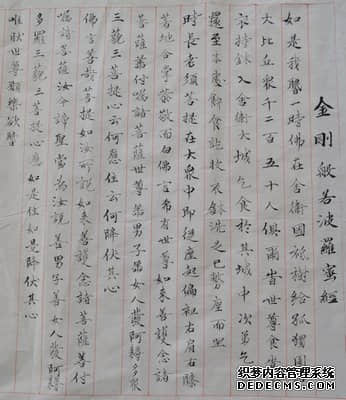 金剛般若波羅蜜經
如是我聞一時佛在舍衛國祇樹給孤獨園
大比丘衆千二百五十人俱爾時世尊食時
衣持鉢入舍衛大城乞食於其城中次第乞
還至本處飯食訖收衣鉢洗足已敷座而坐
時長老須菩提在大衆中即從座起偏袒右肩右膝
著地合掌恭敬而白佛言希有世尊如來善護念諸
菩薩善付囑諸菩薩世尊善男子善女人發阿耨多羅
三藐三菩提心云何應住云何降伏其心
佛言善哉菩提如汝所說如來善護念諸菩薩善付
囑諸菩薩汝今諦聽當為汝說善男子善女人發阿耨
多羅三藐三菩提心應如是住如是降伏其心
唯然世尊願樂欲聞
织梦内容管理系统
DEDECMS.COM